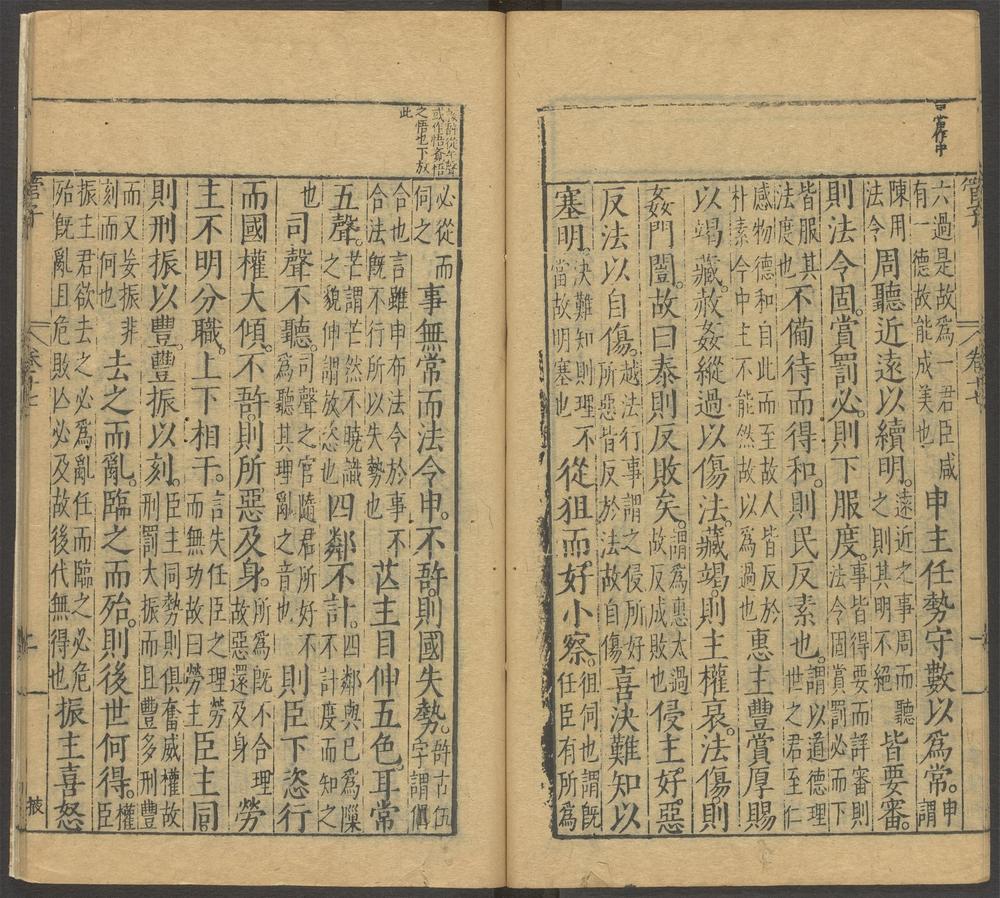 當作中
管子 卷十七
六過是故爲一君臣咸
有一德故能成美也
申主任勢守數以爲常。申謂
陳用
法令
周聽近遠以續明。
遠近之事周而聽
之則其明不絕
皆要審。
則法令固。賞罰必。則下服度。
事皆得要而詳審則
法令固賞罰必而下
皆服其
法度也
不備待而得和。則民反素也。
謂以道德理
世之君至仁
感物德和自此而至故人皆反於
朴素今中主不能然故以爲過也
惠主豐賞厚賜
以竭藏。赦姦縱過以傷法。藏竭。則主權衰。法傷則
姦門闓。故曰泰則反敗矣。
謂爲惠太過
故反成敗也
侵主好惡
反法以自傷。
越法行事謂之侵所好
所惡皆反於法故自傷
喜決難知以
塞明。
決難知則理不
當故明塞也
從狙而好小察。
徂伺也謂既
任臣有所爲
或作悟
之悟也下放
此
必從而
伺之
事無常而法令申。不啎。則國失勢。
啎古伍
字謂偶
合也言雖申布法令於事不
合法既不行所以失勢也
芒主目伸五色。耳常
五聲。
芒謂芒然不曉識
之貌伸謂放恣也
四鄰不計。
四鄰與已爲隟
不計度而知之
也
司聲不聽。
司聲之官隨君所好不
爲聽其理亂之音也
則臣下恣行
而國權大傾。不啎。則所惡及身。
所爲既不合理
故惡還及身
勞
主不明分職。上下相干。
言失任臣之理勞
而無功故曰勞主
臣主同。
則刑振以豐。豐振以刻。
臣主同勢則俱奮威權故
刑罰大振而且豐多刑豐
而又妄振非
刻而何也
去之而亂。臨之而殆。則後世何得。權臣
振主君欲去之必爲亂任而臨之必危
殆既亂且危敗亾必及故後代無得也
振主喜怒
管子 卷十七 掖